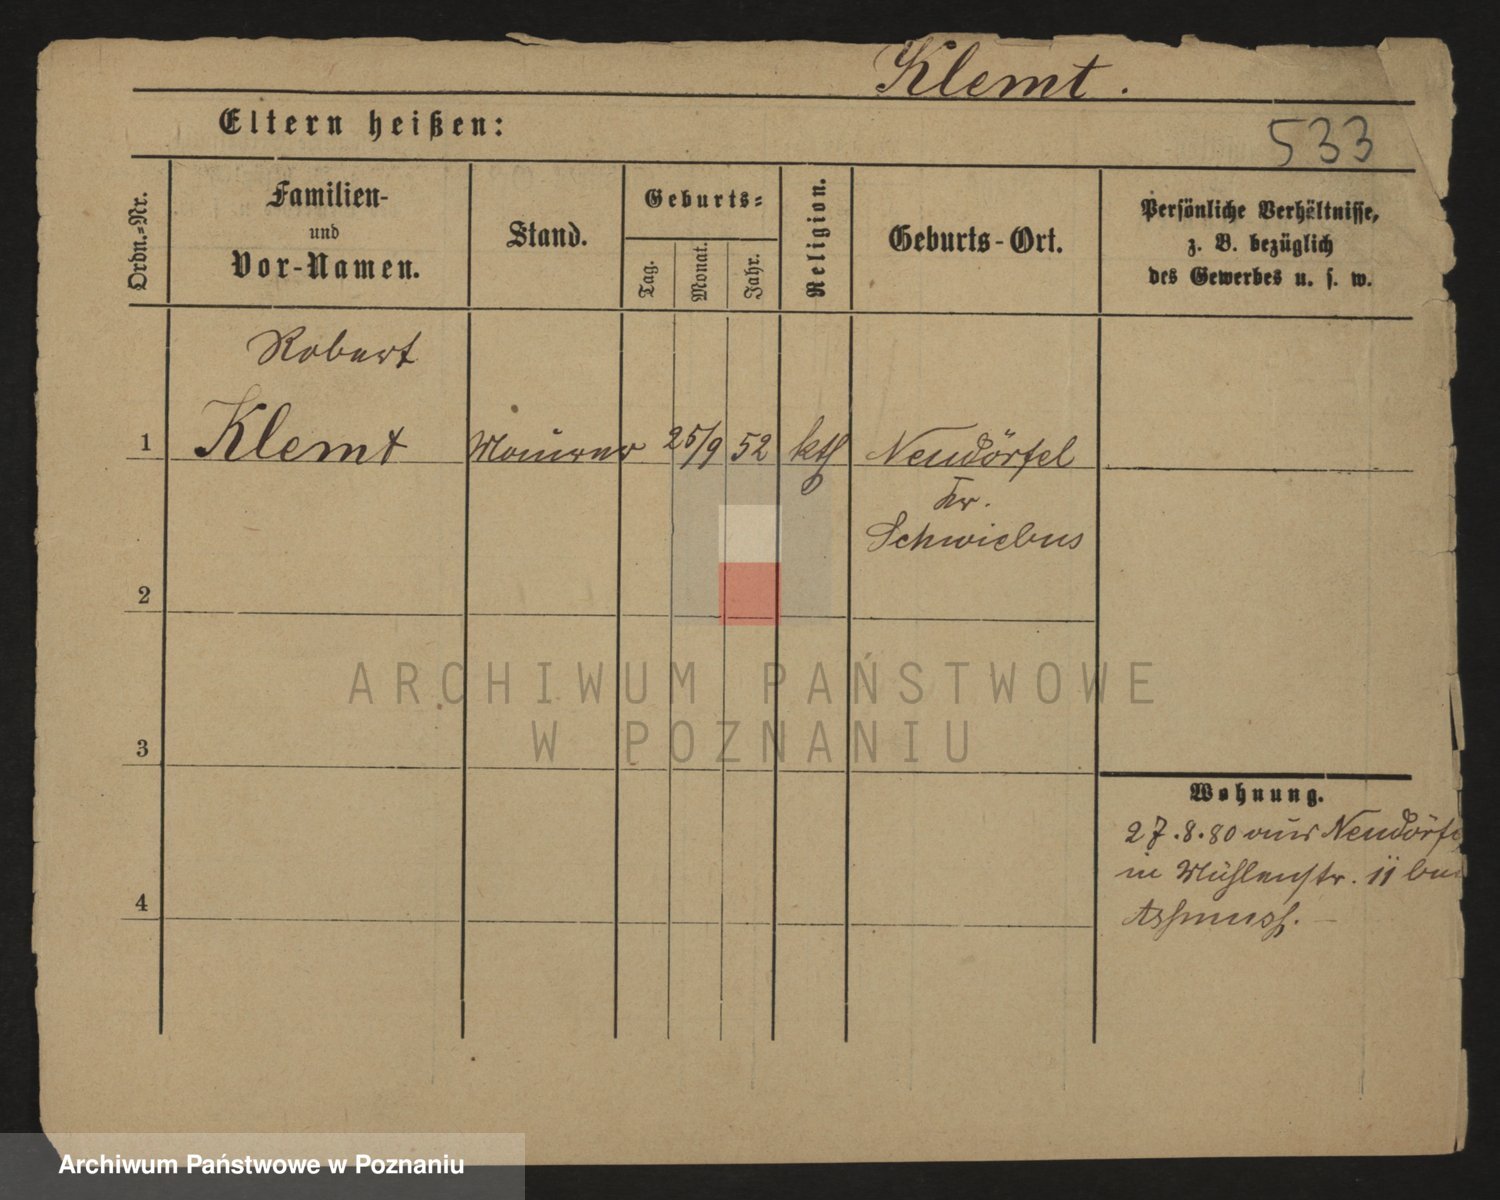 Klemt.
Eltern heißen:
533
Ordn.-Nr.
Familien-
und
Vor-Namen.
Stand.
Geburts-
Tag.
Monat.
Jahr.
Religion.
Geburts-Ort.
Persönliche Verhältnisse,
z. B. bezüglich
des Gewerbes u. s. w.
Robert
1 Klemt Maurer 25/9 52 kth Neudörfel
Kr.
Schwiebus
2
3
4
Wohnung.
27.8.80 aus Neudörfe
in Mühlenstr. 11 bei
ARCHIWUM PAŃSTWOWE
W POZNANIU
Archiwum Państwowe w Poznaniu